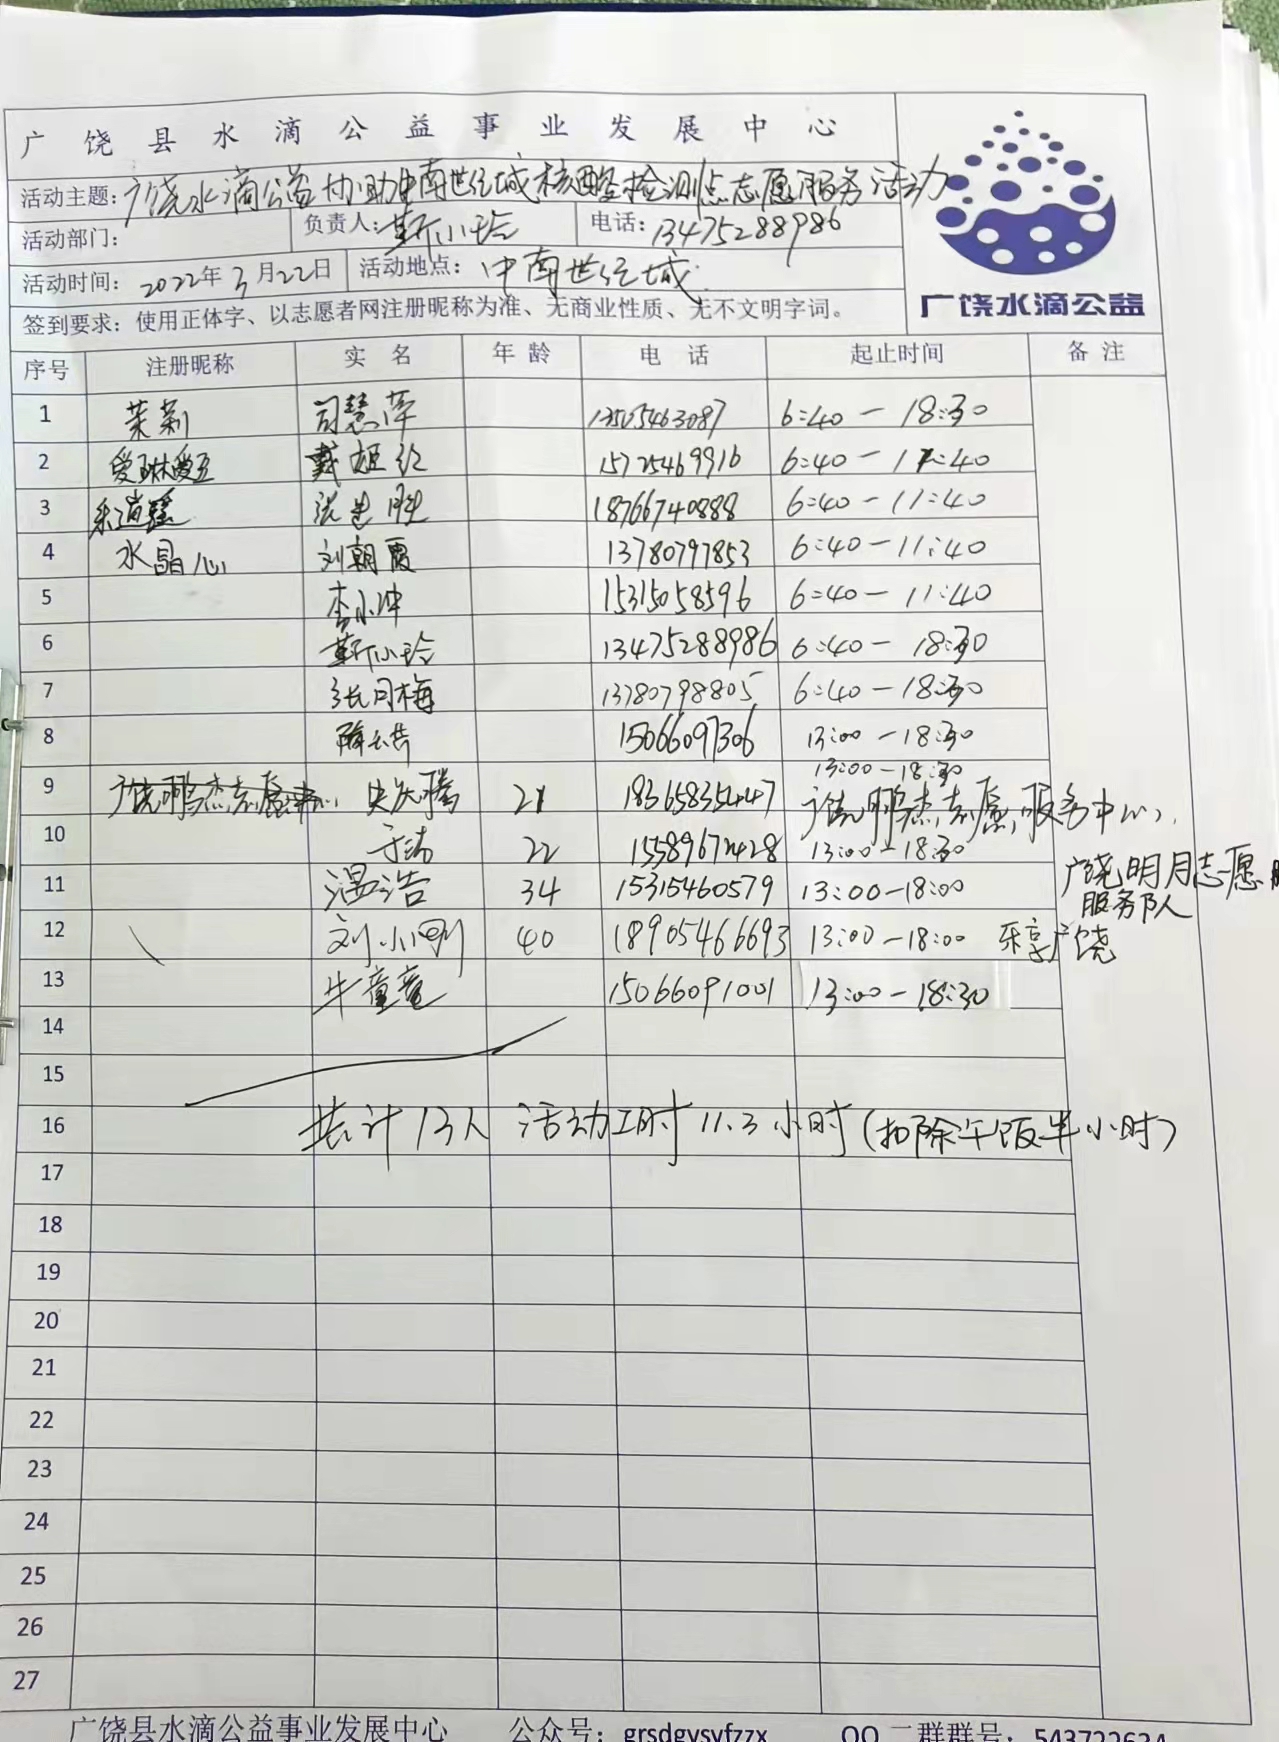 广饶县水滴公益事业发展中心
活动主题：广饶水滴公益协助中南世纪城核酸检测点志愿服务活动
活动部门： 负责人：靳小玲 电话：13475288986
活动时间：2022年3月22日 活动地点：中南世纪城
签到要求：使用正体字、以志愿者网注册昵称为准、无商业性质、无不文明字词。
广饶水滴公益
序号 注册昵称 实名 年龄 电话 起止时间 备注
1 茉莉 司慧萍 13505463087 6:40—18:30
2 戴姬红 15725469916 6:40—11:40
3 18766740888 6:40—11:40
4 水晶心 刘朝霞 13780797853 6:40—11:40
5 李小冲 15315058596 6:40—11:40
6 靳小玲 13475288986 6:40—18:30
7 张月梅 13780798805 6:40—18:30
8 15066097306 13:00—18:30
13:00—18:30
9 广饶鹏杰志愿 21 18365835447 广饶鹏杰志愿服务中心
10 22 15589672428 13:00—18:30
11 温浩 34 15315460579 13:00—18:00 广饶明月志愿服务队
12 刘小刚 40 18905466693 13:00—18:00 乐享广饶
13 牛童童 15066091001 13:00—18:30
14
15
16 共计13人 活动工时11.3小时（扣除午饭半小时）
17
18
19
20
21
22
23
24
25
26
27
广饶县水滴公益事业发展中心 公众号：grsdgysyfzzx QQ二群群号：543722634